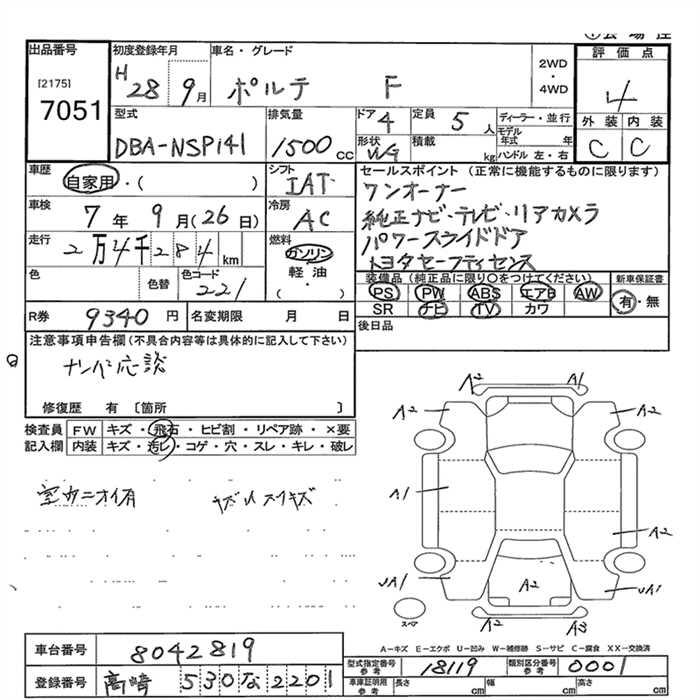 出品番号
[2175]
7051
初度登録年月
H 28 9月
車名・グレード
ポルテ F
2WD
・
4WD
評価点
4
外装 内装
C C
型式
DBA-NSP141
排気量
1500 CC
ドア 4
形状 WG
定員 5 人
積載 kg
ディーラー・並行
モデル年式 年
ハンドル 左・右
車歴
自家用・( )
シフト
IAT
セールスポイント (正常に機能するものに限ります)
ワンオーナー
純正ナビ・テレビ・リアカメラ
パワースライドドア
トヨタセーフティセンス
車検
7年 9月(26日)
冷房
AC
走行
2万4千284 km
燃料
ガソリン
軽・油
・( )
色
色替
色コード
221
装備品 (純正品に限り○をつけてください)
PS PW ABS エアB AW
SR ナビ TV カワ
新車保証書
有・無
R券 9340 円
名変期限 月 日
後日品
注意事項申告欄 (不具合内容等は具体的に記入して下さい)
ナンバー応談
修復歴 有 〔箇所 〕
検査員記入欄
FW キズ・飛石・ヒビ割・リペア跡・×要
内装 キズ・汚レ・コゲ・穴・スレ・キレ・破レ
室内ニオイ有
キズ・スリキズ
A2 A1
A2 A2
A1
A2
UA1 A2 UA1
A2 A3
スペア
A-キズ E-エクボ U-凹み W-補修跡 S-サビ C-腐食 XX-交換済
車台番号 8042819
登録番号 高崎 530 な 2201
型式指定番号 参考 18119
類別区分番号 参考 0001
車庫証明用 参考 長さ cm 幅 cm 高さ cm